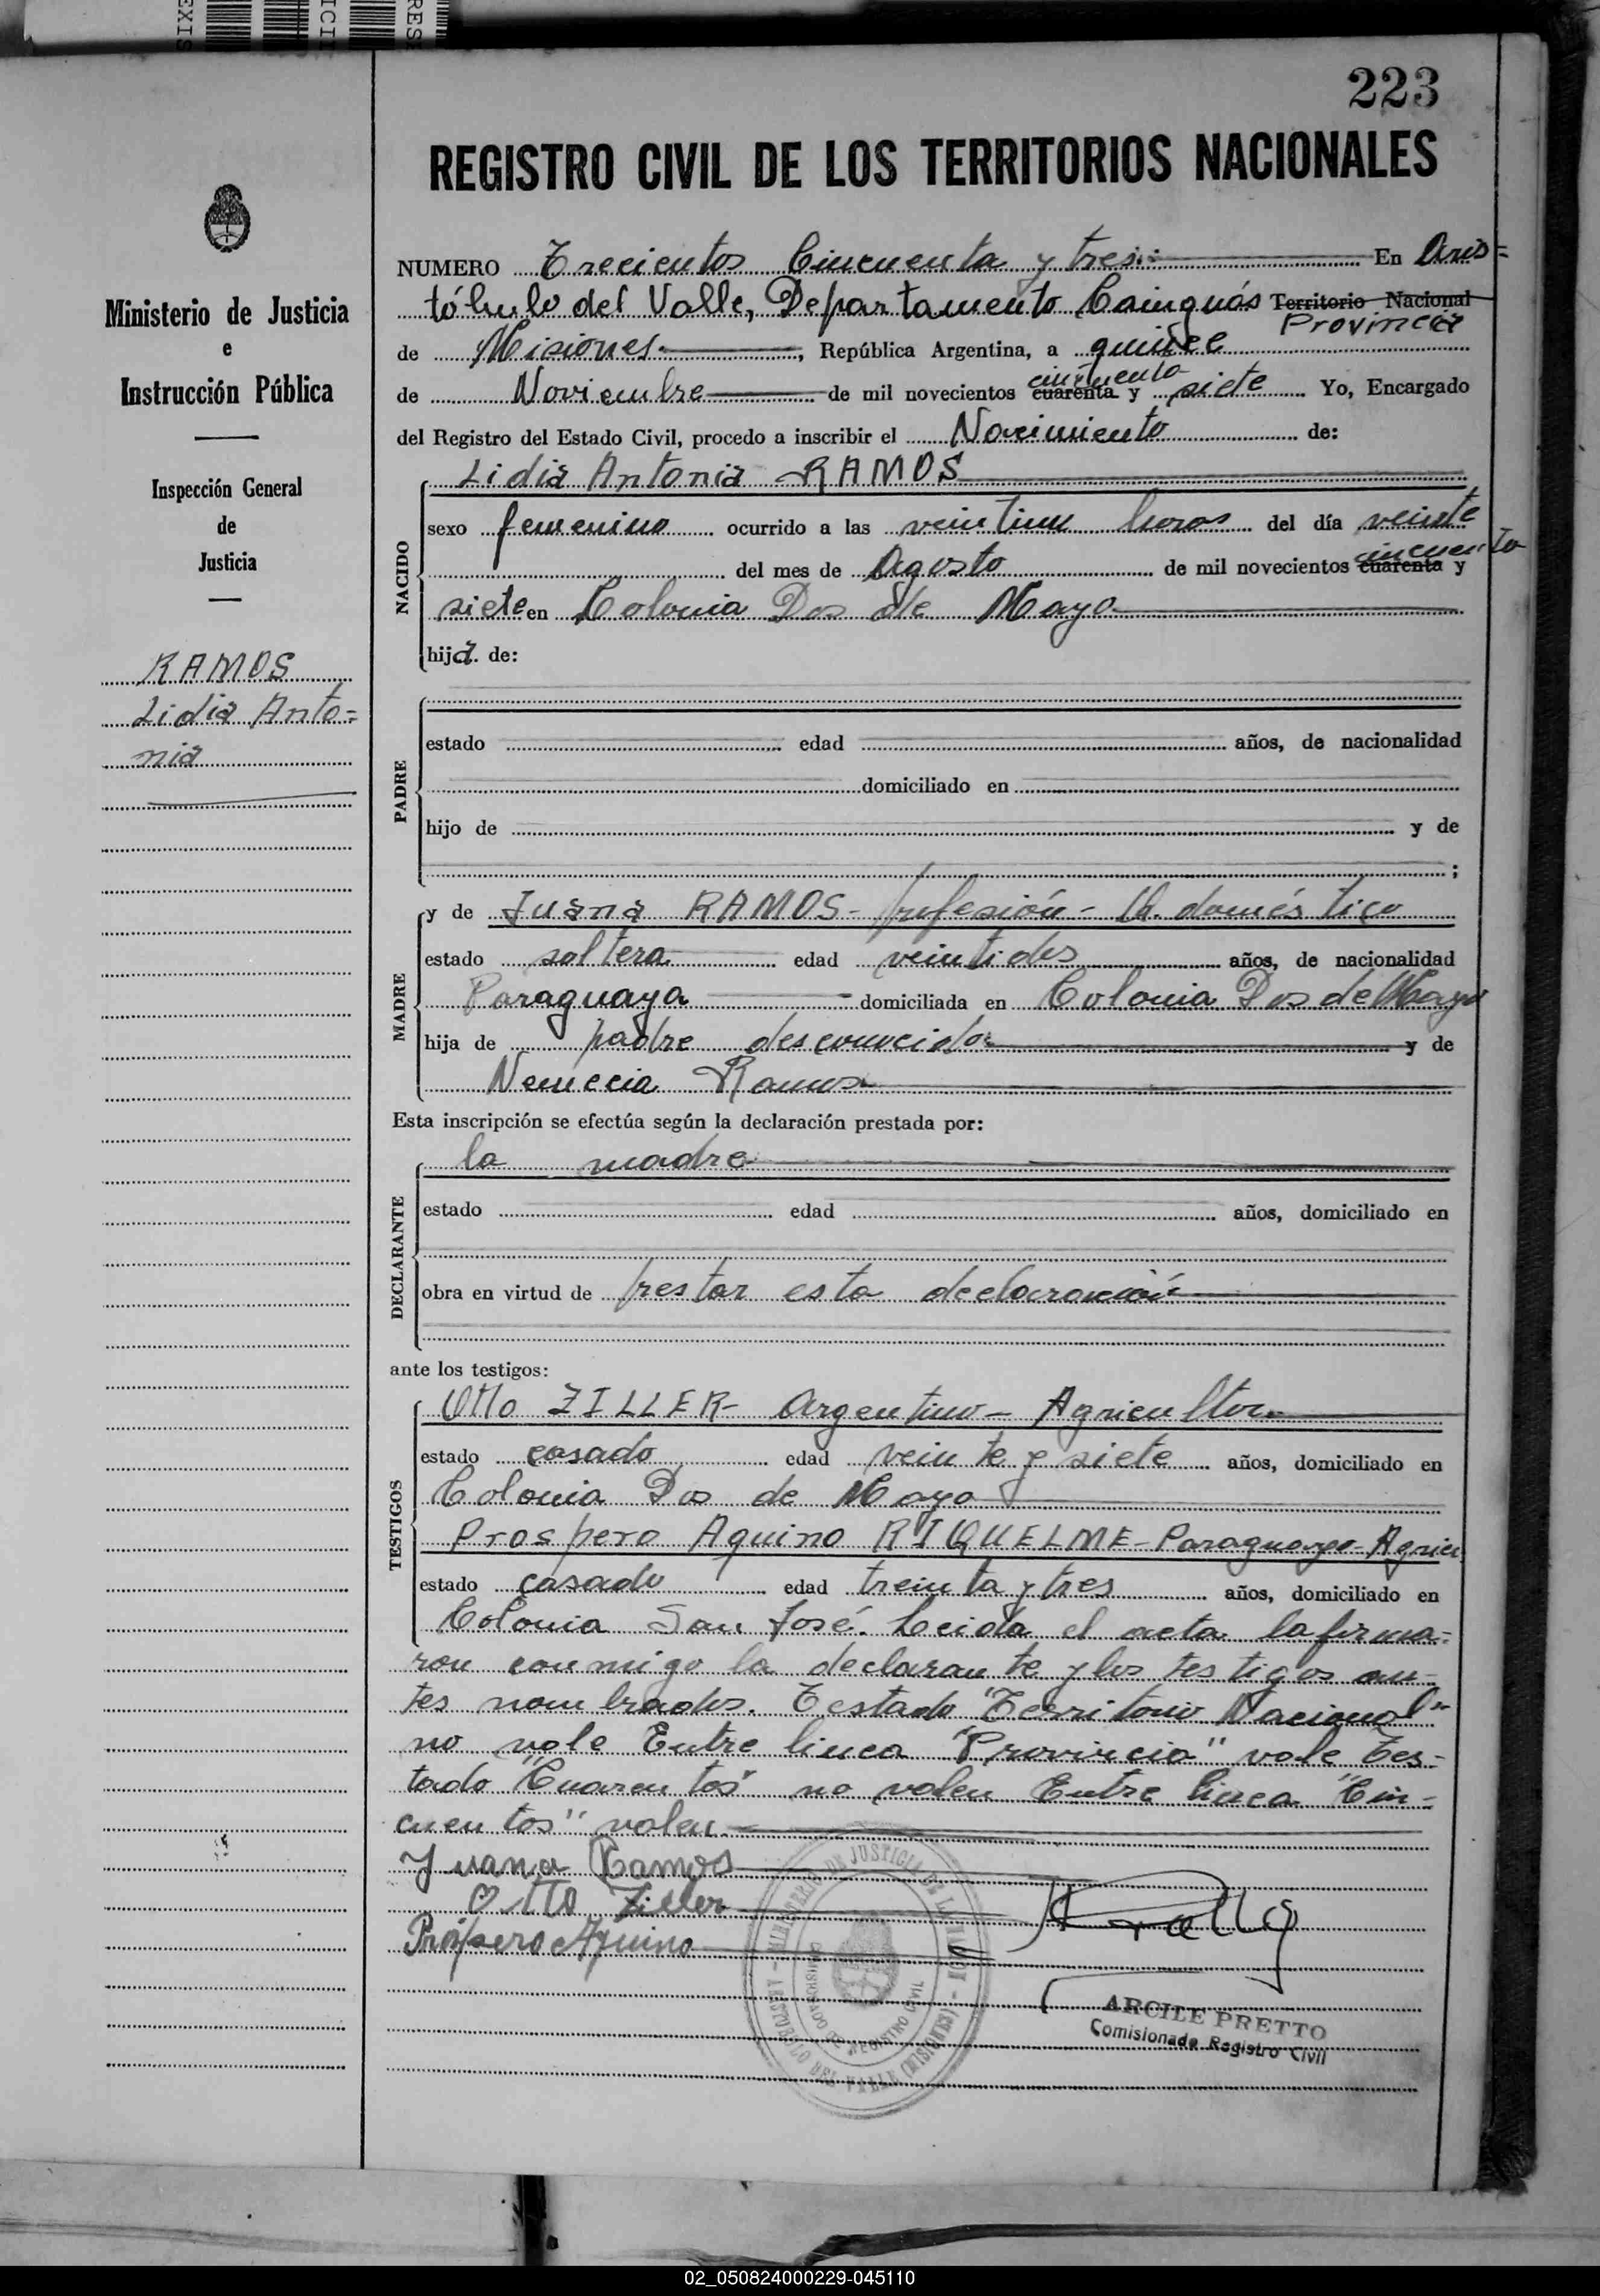 223
REGISTRO CIVIL DE LOS TERRITORIOS NACIONALES
Ministerio de Justicia
e
Instrucción Pública
Inspección General
de
Justicia
RAMOS
Lidia Anto=
nia
NUMERO Trecientos Cincuenta y tres En Aris=
tóbulo del Valle, Departamento Cainguás Territorio Nacional
Provincia
de Misiones, República Argentina, a quince
cincuenta
de Noviembre de mil novecientos cuarenta y siete Yo, Encargado
del Registro del Estado Civil, procedo a inscribir el Nacimiento de:
NACIDO
Lidia Antonia RAMOS
sexo femenino ocurrido a las veintiun horas del día veinte
cincuenta
del mes de Agosto de mil novecientos cuarenta y
siete en Colonia Dos de Mayo
hija de:
PADRE
estado edad años, de nacionalidad
domiciliado en
hijo de y de
;
MADRE
y de Juana RAMOS- profesión- Q. doméstico
estado soltera edad veintidos años, de nacionalidad
Paraguaya domiciliada en Colonia Dos de Mayo
hija de padre desconocido y de
Nemecia Ramos
Esta inscripción se efectúa según la declaración prestada por:
DECLARANTE
la madre
estado edad años, domiciliado en
obra en virtud de prestar esta declaración
ante los testigos:
TESTIGOS
Otto ZILLER- Argentino- Agricultor
estado casado edad veinte y siete años, domiciliado en
Colonia Dos de Mayo
Prospero Aquino RIQUELME-Paraguayo-Agricu
estado casado edad treinta y tres años, domiciliado en
Colonia San José. Leida el acta la firma=
ron conmigo la declarante y los testigos an-
tes nombrados. Testado "Territorio Nacional"
no vale Entre linea "Provincia" vale Tes-
tado "Cuarentas" no valen Entre linea "Cin-
cuentas" valen.
Juana Ramos
Otto Ziller
Próspero Aquino
MINISTERIO DE JUSTICIA DE LA NACION
COMISIONADO DE REGISTRO CIVIL
ARISTOBULO DEL VALLE (MISIONES)
ARCILE PRETTO
Comisionado Registro Civil
02_050824000229-045110